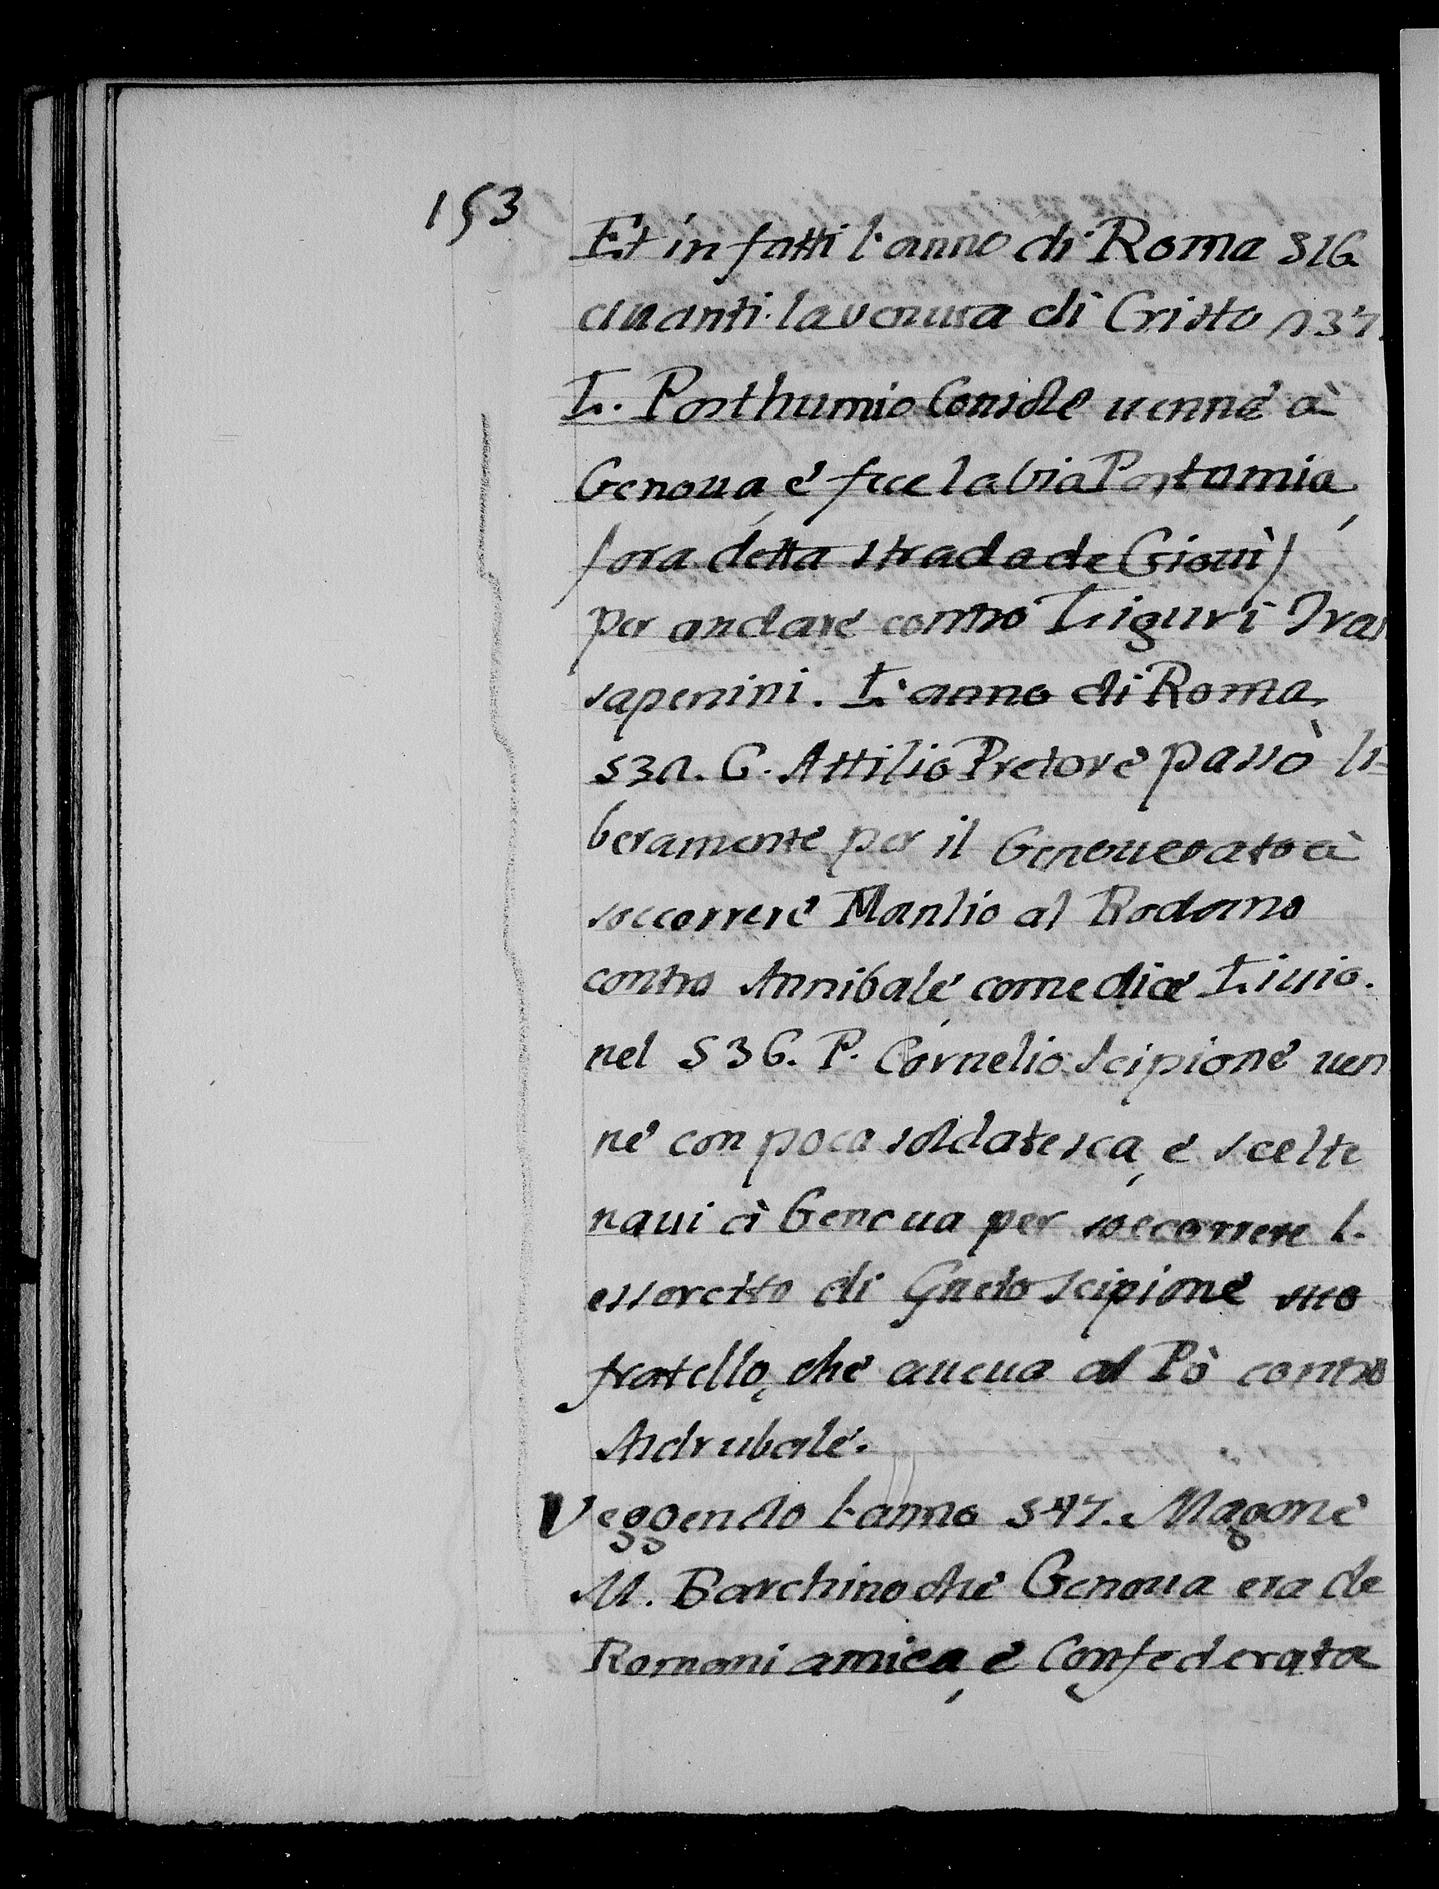 153
Et in fatti l'anno di Roma 516
auanti la uenuta di Cristo 237.
L. Posthumio Console uenne à
Genoua, e' fece la via Postumia,
(ora detta strada de Gioui)
per andare contro Liguri Tras
sapenini. L'anno di Roma
532. C. Attilio Pretore passò li=
beramente per il Genouesato à
soccorrere Manlio al Rodano
contro Annibale, come dice Liuio.
nel 536. P. Cornelio Scipione uen
ne con poca soldatesca, e scelte
naui à Genoua per soccorrere l'
essorcitto di Gneto Scipione suo
fratello, che aueua al Pò contro
Asdrubale.
Veggendo l'anno 547. Magone
M. Barchino che Genoua era de
Romani amica, e Confederata